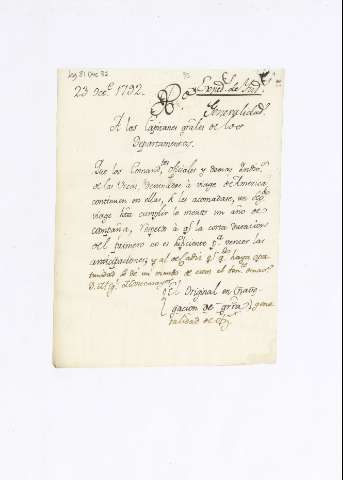 Leg 81 Doc 82
23 Dicᵉ. 1792.
Expedˢ. de Indˢ.
Generalidad.
A los Capitanes grãles de los
Departamentos.
Que los Comandᵗᵉˢ oficiales y demas Individˢ
de las Vrcas destinadas à viage de America
continuen en ellas, si les acomodare, un segᵈᵒ
viage hta cumplir lo menos un año de
campaña, respecto à qᵉ la corta duracion
del primero no es suficiente pᵃ. vencer las
anticipaciones; y al de Cadiz qᵉ qᵈᵒ haya opor
tunidad
El Original en Nave
gacion de grra gene
ralidad de